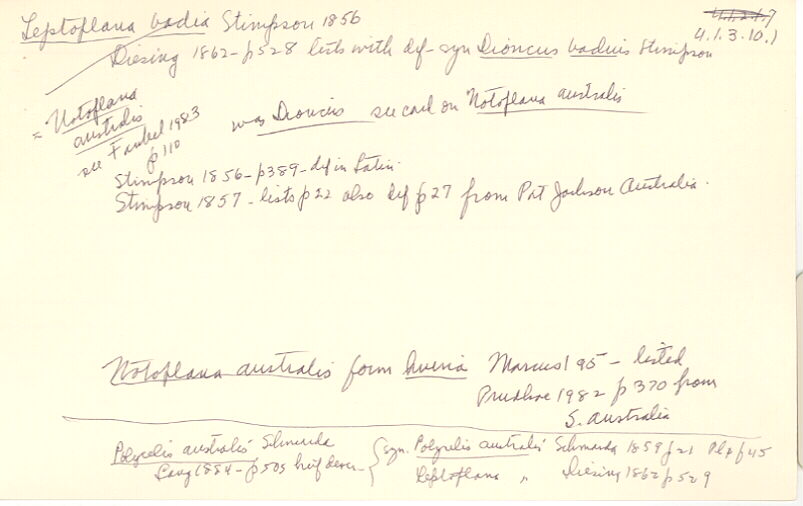 Leptoplana badia Stimpson 1856
4.1.3.10.1
Diesing 1862 - p528 lists with def - syn Dioncus badius Stimpson
= Notoplana australis
see Faubel 1983 p110
was Dioncus see card on Notoplana australis
Stimpson 1856 - p389 - def in Latin.
Stimpson 1857 - lists p22 also def p27 from Port Jackson Australia.
Notoplana australis form Marcus 195 - listed
Prudhoe 1982 p370 from
S. Australia
Polycelis australis Schmarda { syn. Polycelis australis Schmarda 1859 p21 Pl f45
Lang 1884 - p505 brief descr - Leptoplana " Diesing 1862 p529